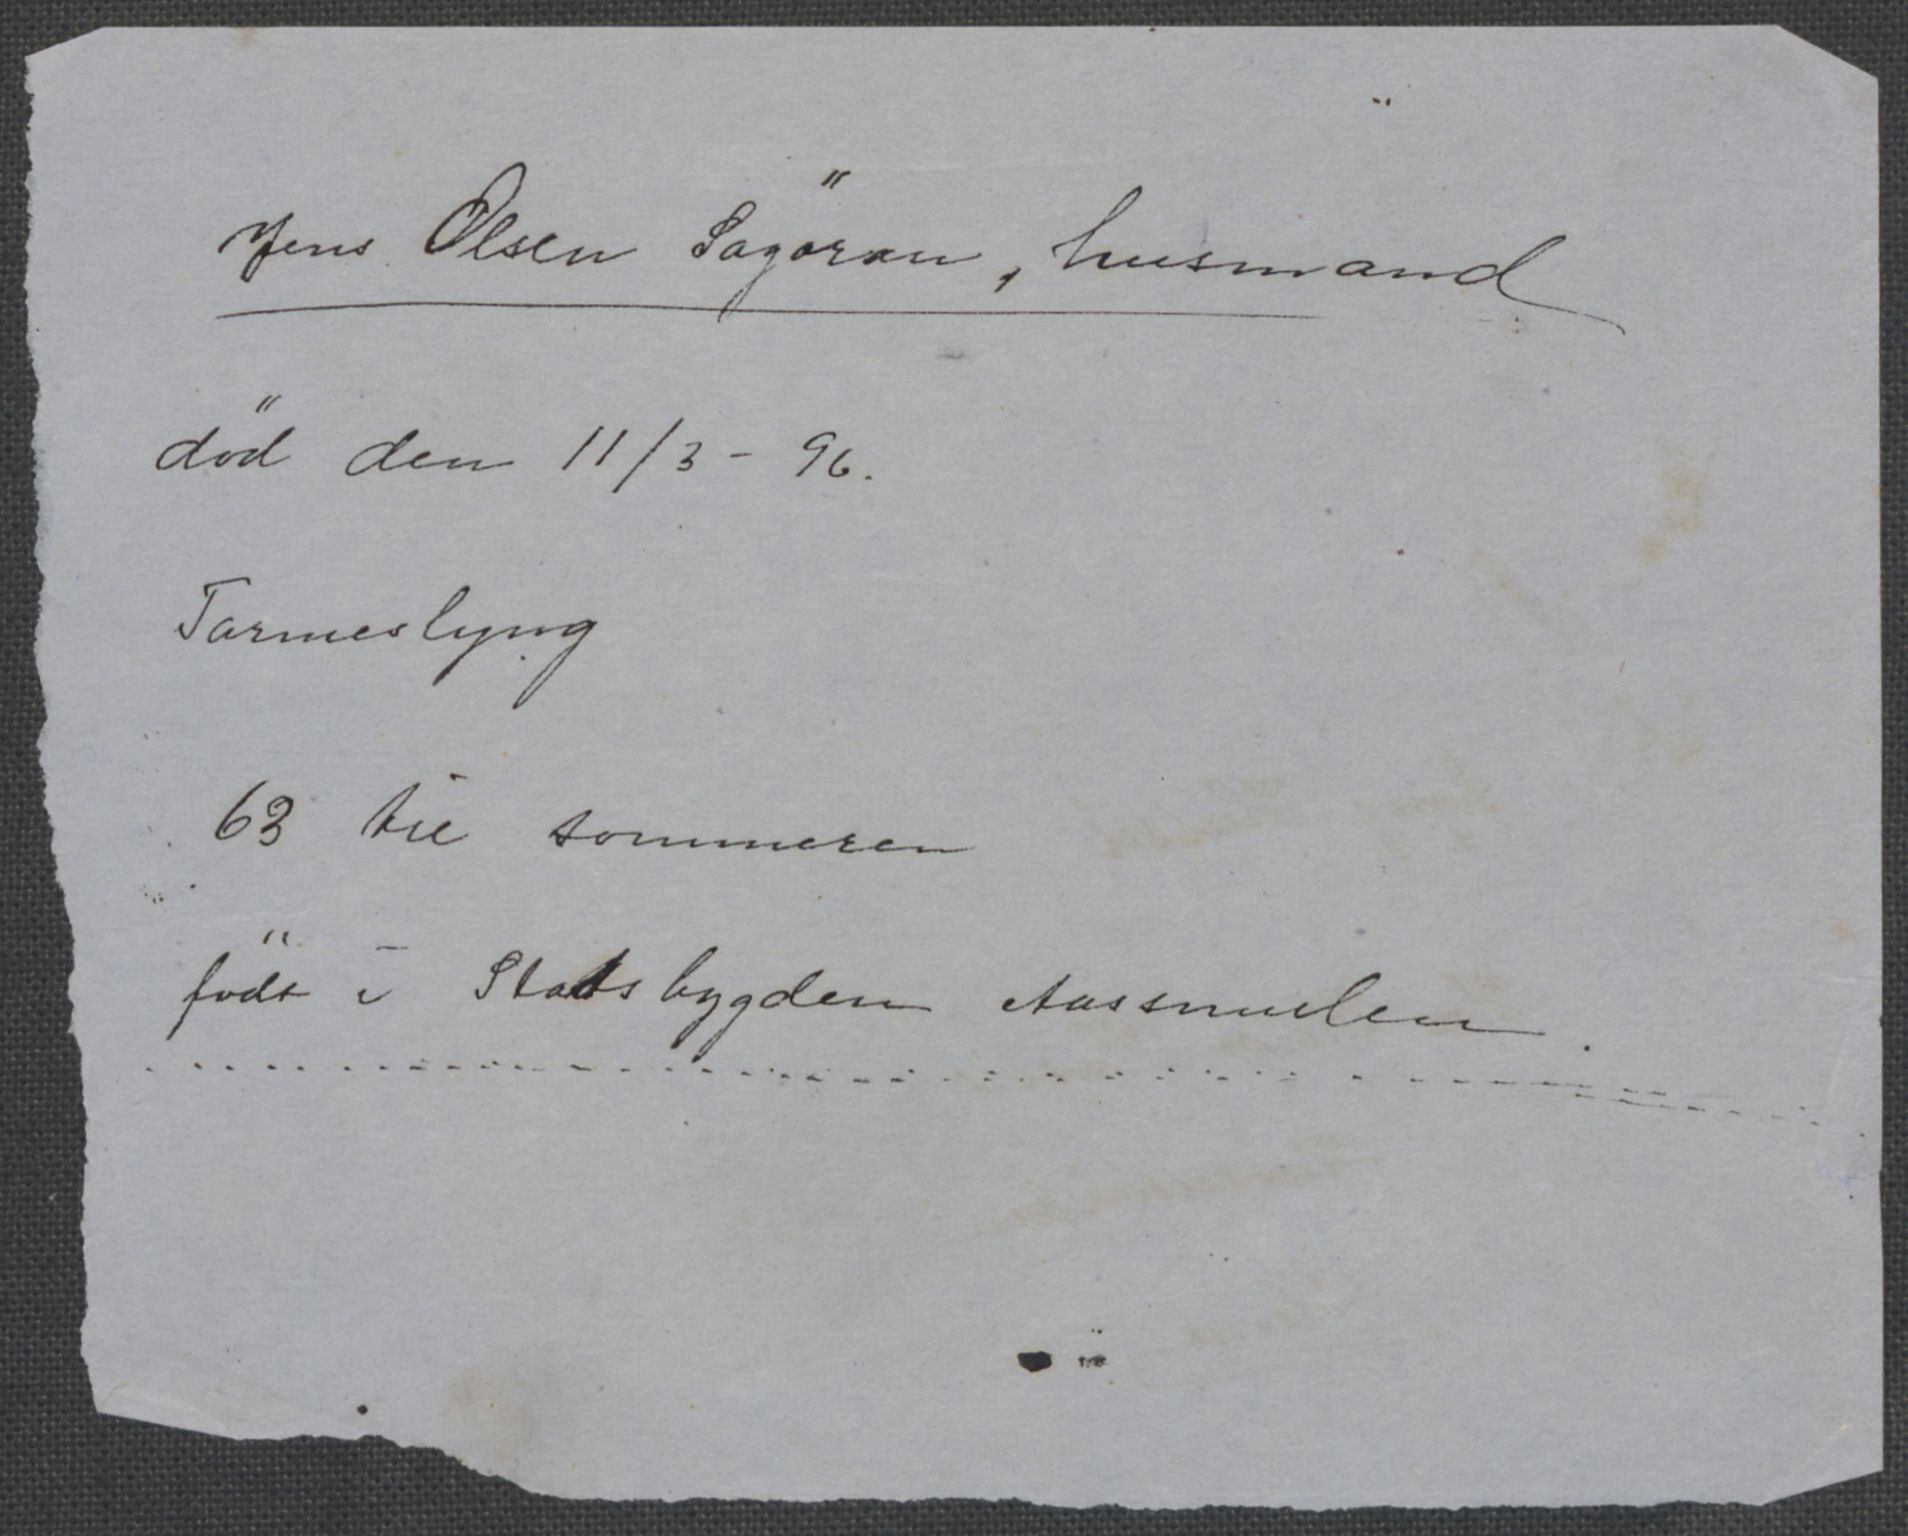 Jens Olsen Sagöran, husmand
död den 11/3 - 96.
Tarmeslyng
63 til sommeren
födt i Stadsbygden Aassmulen.